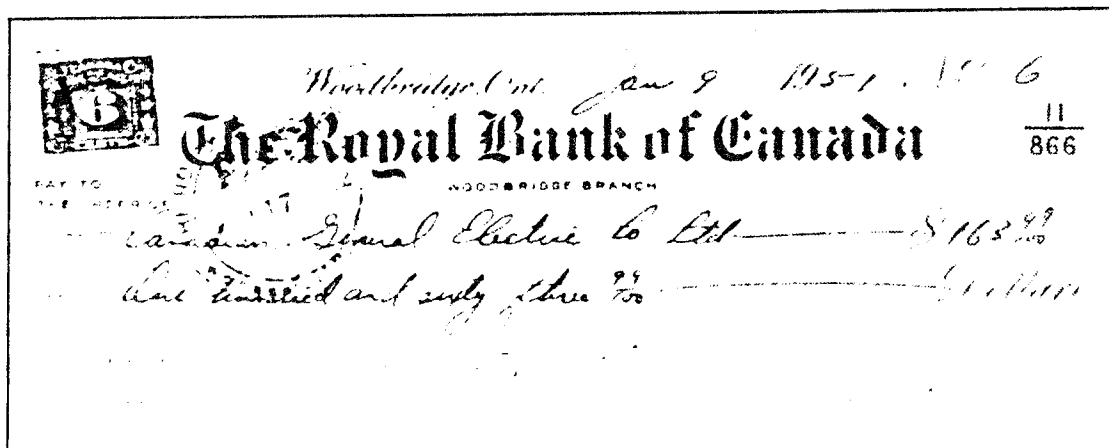 6
Woodbridge, Ont. Jan 9 1951. No 6
The Royal Bank of Canada
11
866
WOODBRIDGE BRANCH
PAY TO
THE ORDER OF
Canadian General Electric Co Ltd $163 99/100
One hundred and sixty three 99/100 Dollars